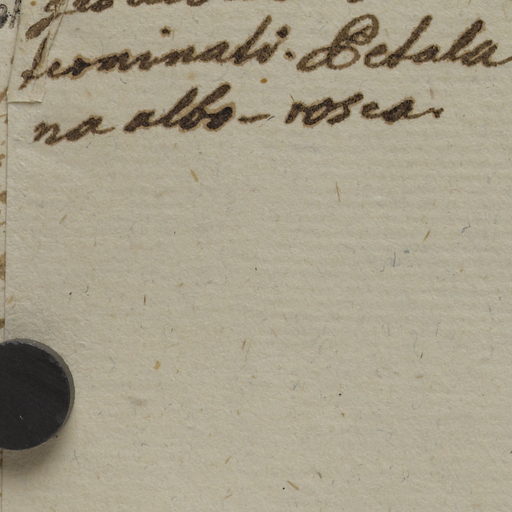 terminati. Petala
na albo-rosea.